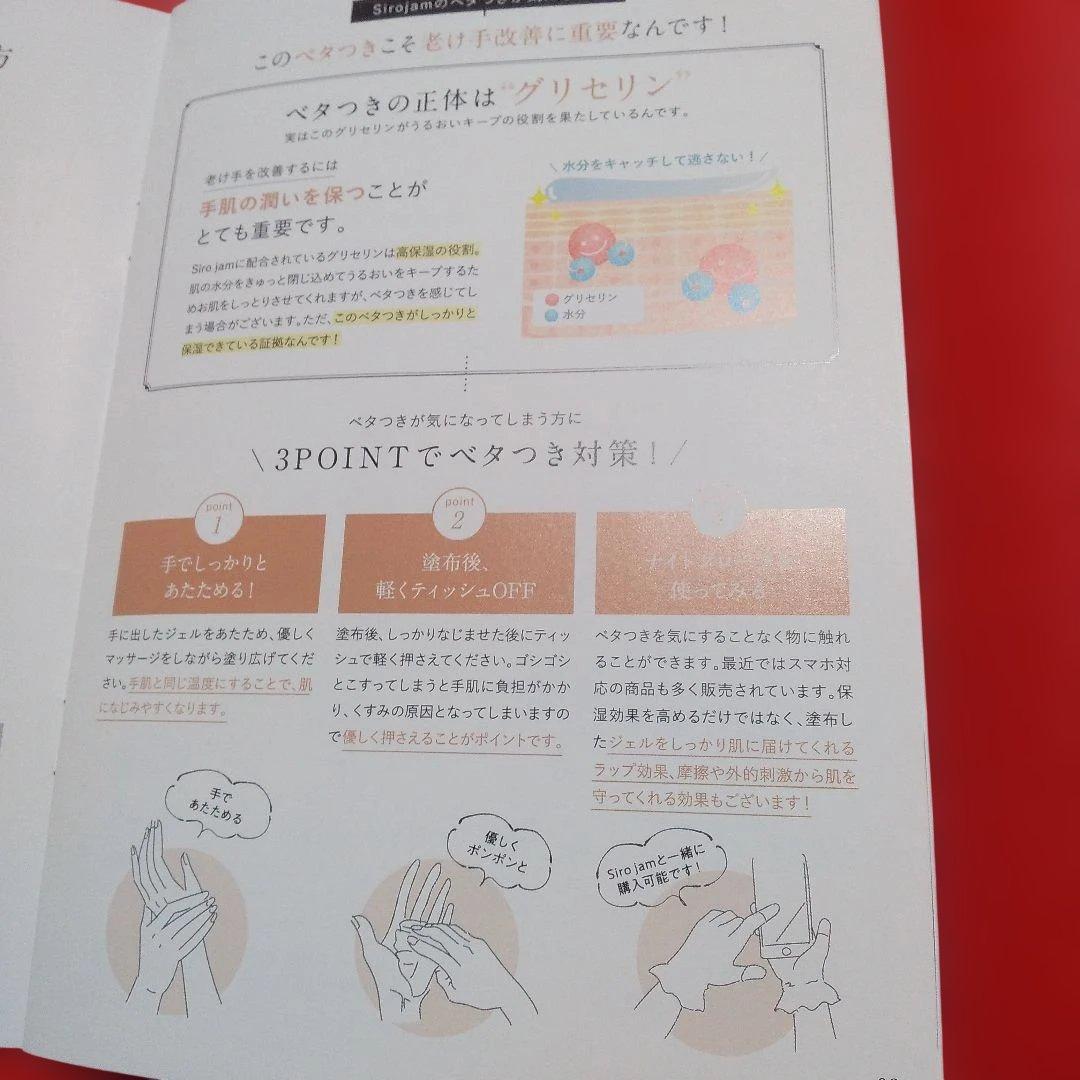 方
Sirojamのベタつきが
このベタつきこそ老け手改善に重要なんです！
ベタつきの正体は“グリセリン”
実はこのグリセリンがうるおいキープの役割を果たしているんです。
老け手を改善するには
手肌の潤いを保つことが
とても重要です。
Siro jamに配合されているグリセリンは高保湿の役割。
肌の水分をきゅっと閉じ込めてうるおいをキープするた
めお肌をしっとりさせてくれますが、ベタつきを感じてし
まう場合がございます。ただ、このベタつきがしっかりと
保湿できている証拠なんです！
\ 水分をキャッチして逃さない！ /
グリセリン
水分
ベタつきが気になってしまう方に
\ 3POINTでベタつき対策！ /
point
1
手でしっかりと
あたためる！
手に出したジェルをあたため、優しく
マッサージをしながら塗り広げてくだ
さい。手肌と同じ温度にすることで、肌
になじみやすくなります。
手で
あたためる
point
2
塗布後、
軽くティッシュOFF
塗布後、しっかりなじませた後にティッ
シュで軽く押さえてください。ゴシゴシ
とこすってしまうと手肌に負担がかか
り、くすみの原因となってしまいますの
で優しく押さえることがポイントです。
優しく
ポンポンと
使ってみる
ベタつきを気にすることなく物に触れ
ることができます。最近ではスマホ対
応の商品も多く販売されています。保
湿効果を高めるだけではなく、塗布し
たジェルをしっかり肌に届けてくれる
ラップ効果、摩擦や外的刺激から肌を
守ってくれる効果もございます！
Siro jamと一緒に
購入可能です！